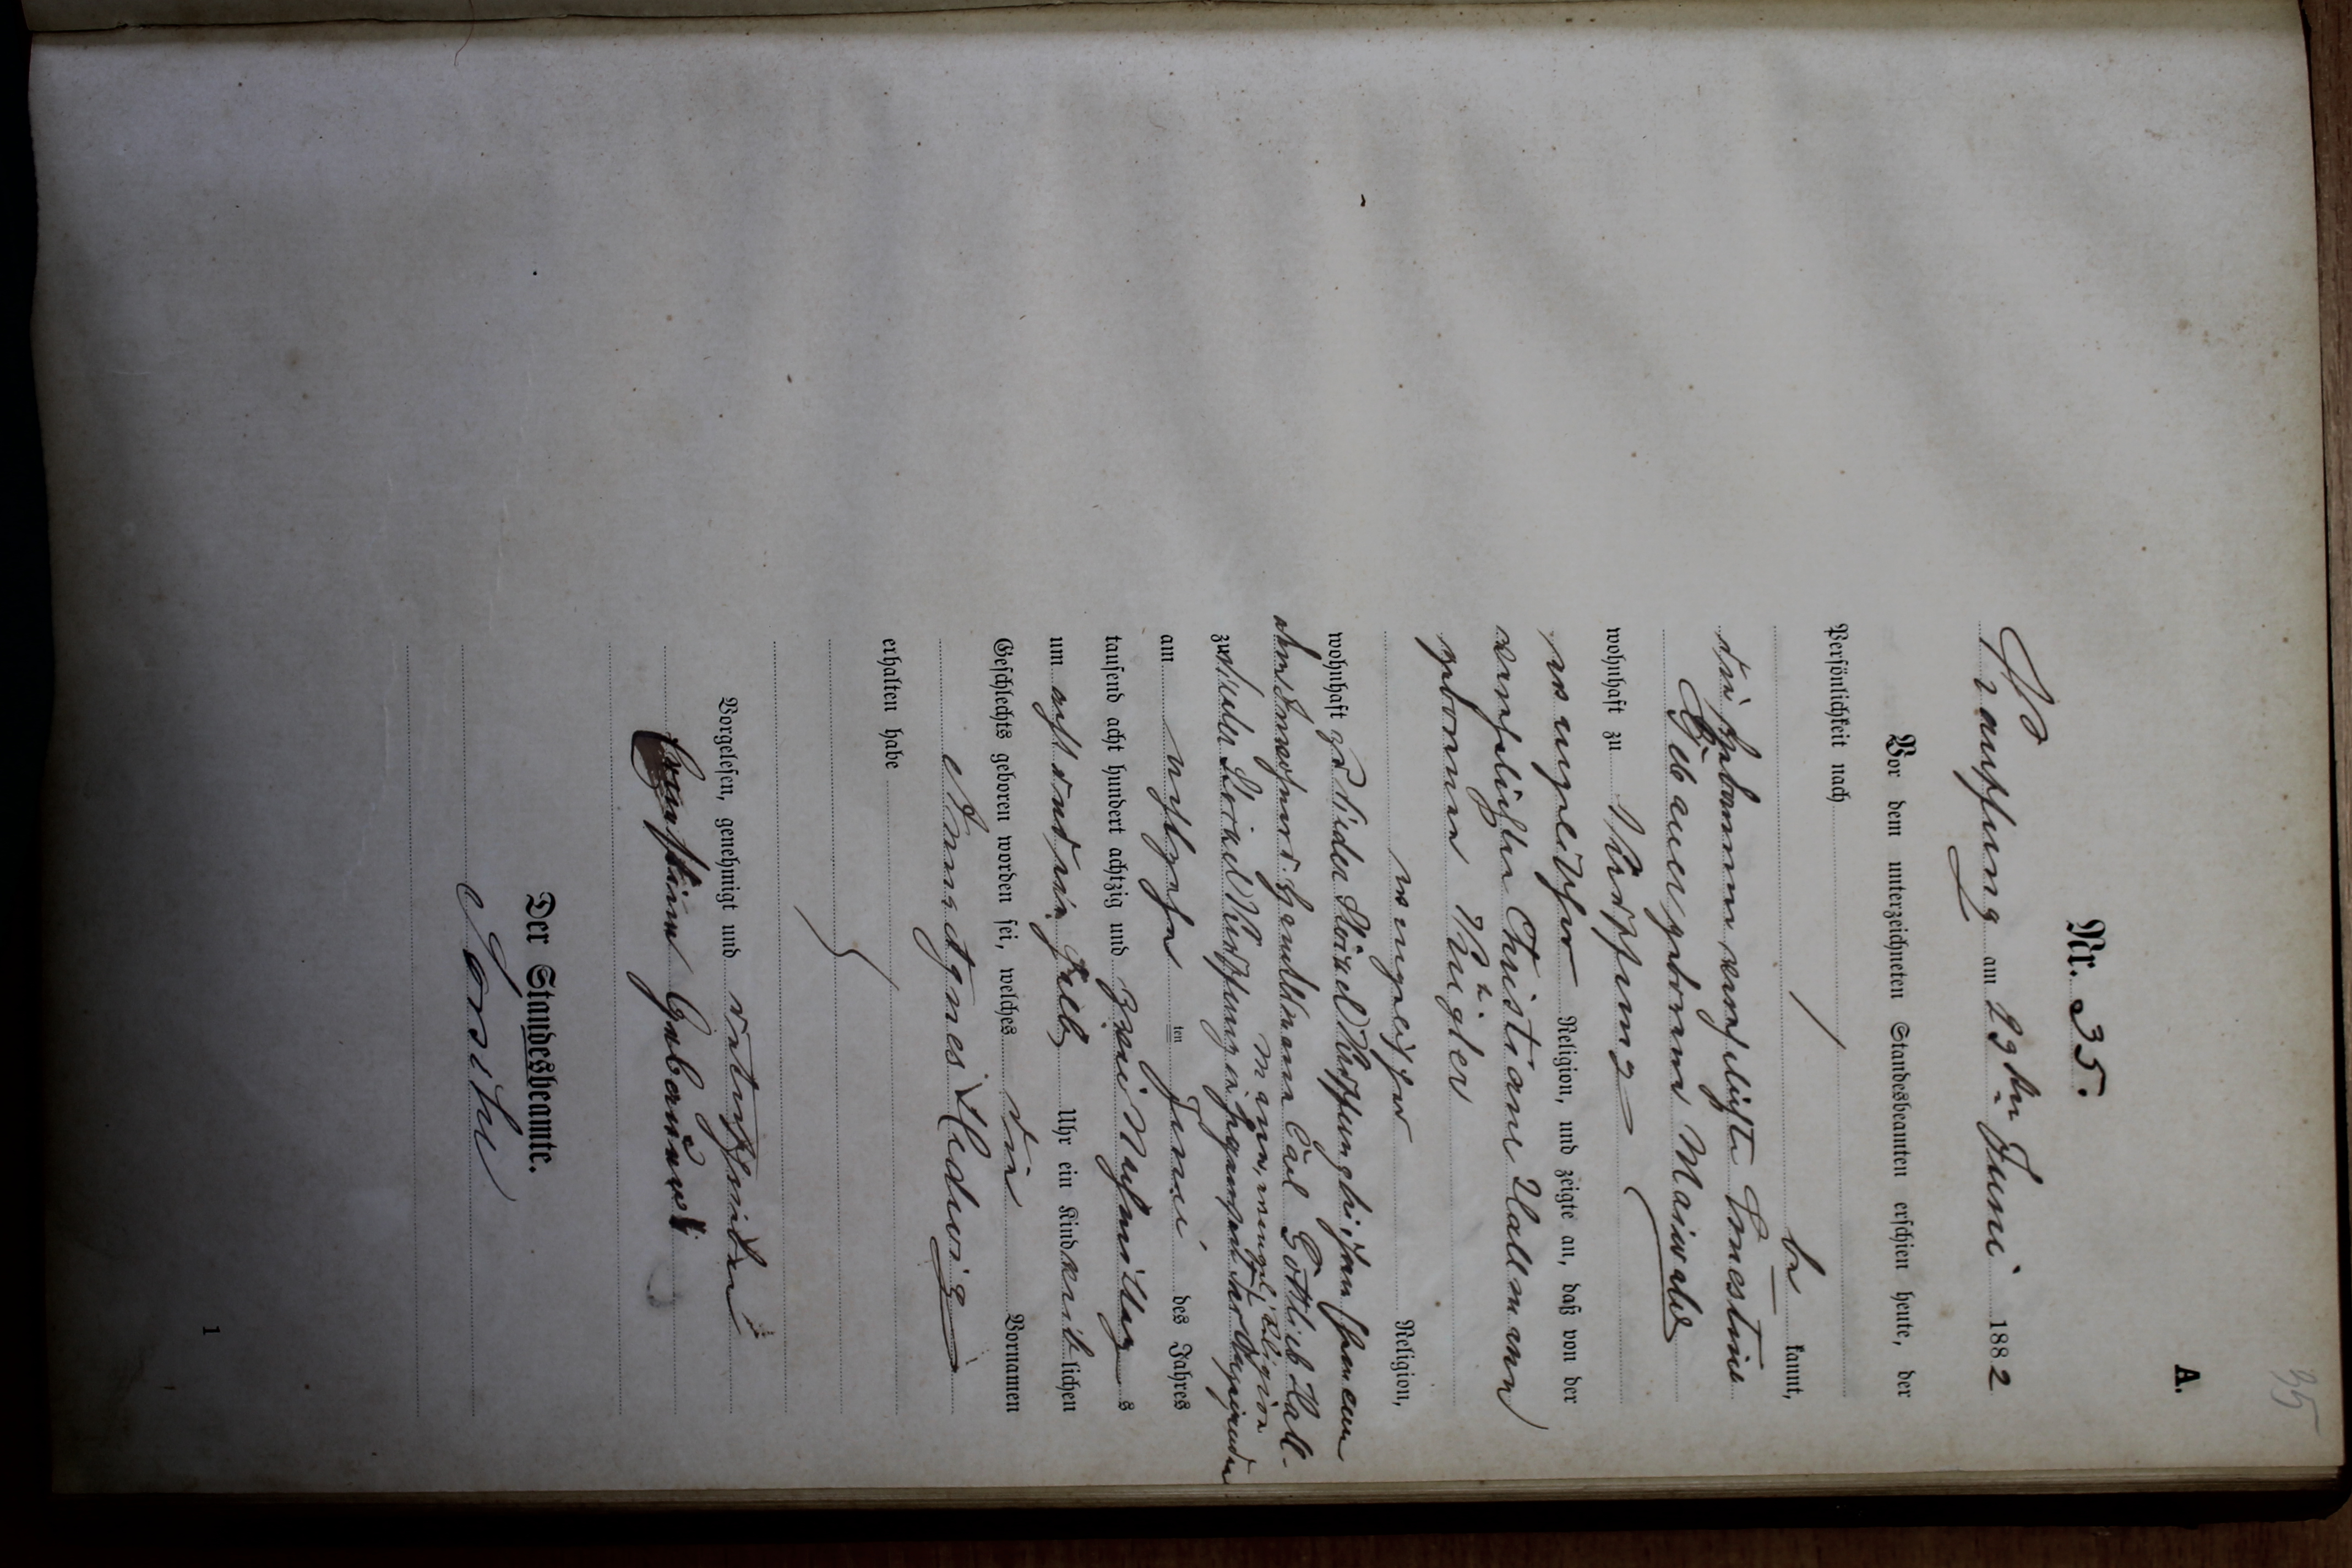 35
A.
Nr. 35.
am 23ten Juni 1882
Vor dem unterzeichneten Standesbeamten erschien heute, der
Persönlichkeit nach
be kannt,
die Hebamme verehelichte Ernestine
Gebauer geborene Maiwald
wohnhaft zu
evangelischer Religion, und zeigte an, daß von der
verehelichten Christiane Hallmann
geborene Kügler
evangelischer Religion,
wohnhaft zu bei ihrem Ehemann
Carl Gottlieb Hall-
mann, evangel. Religion
zu
am achtzehn ten Juni des Jahres
tausend acht hundert achtzig und zwei Nachmittag s
um acht und ein halb Uhr ein Kind weib lichen
Geschlechts geboren worden sei, welches die Vornamen
Anna Agnes Hedwig
erhalten habe
Vorgelesen, genehmigt und unterschrieben
Ernestine Gebauer
Der Standesbeamte.
1